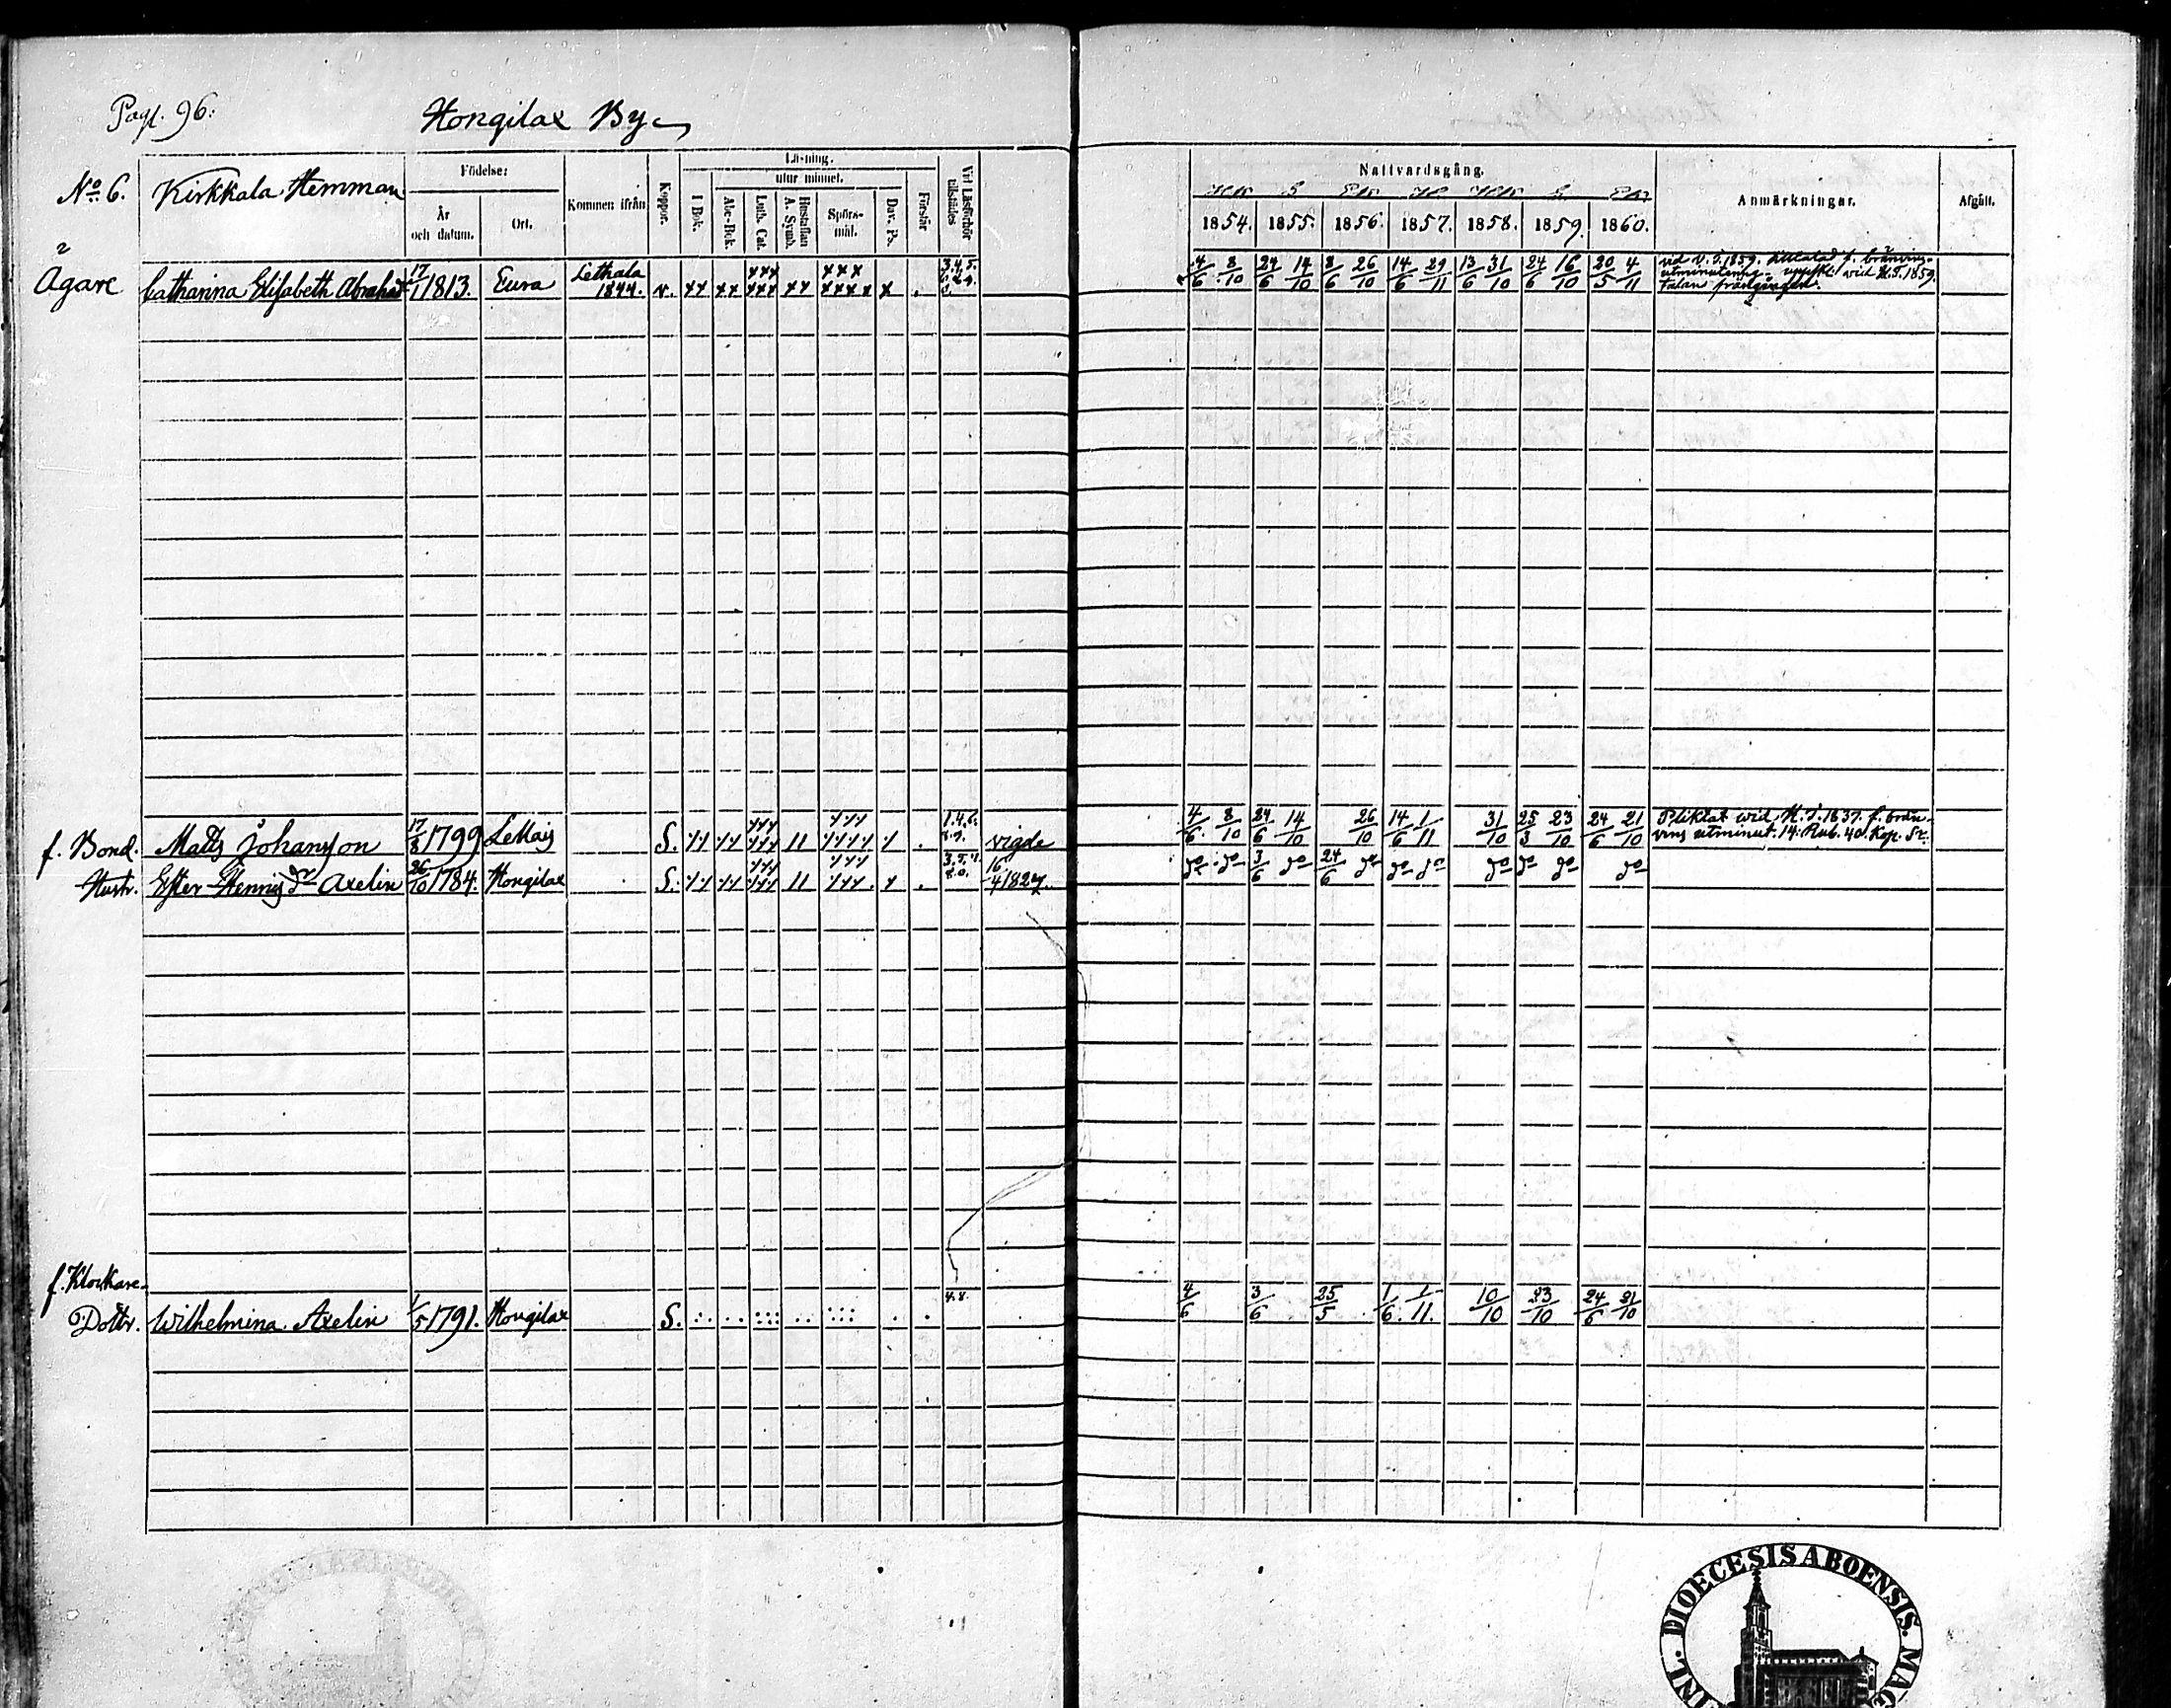 Pag. 96.
Hongilax By
No 6. Kirkkala Hemman
Födelse:
År och datum.
Ort.
Kommen ifrån
Koppor.
Läsning.
utur minnet.
I Bok.
Abc-Bok.
Luth. Cat.
Hustaflan A. Symb.
Spörs-mål.
Dav. Ps.
Förstår
Vid Läsförhör tillstädes
Nattvardsgång.
1854. 1855. 1856. 1857. 1858. 1859. 1860.
Anmärkningar.
Afgått.
Ägare Catharina Elisabeth Abrahad 17/1 1813. Eura Lethala 1844. v. 4/6 8/10 24/6 14/10 8/6 26/10 14/6 29/11 13/6 31/10 24/6 16/10 20/5 4/11
wid H.T. 1859.
f. Bond. Matts Johansson 17/8 1799 LeMais S. vigde 4/6 8/10 24/6 14/10 26/10 14/6 1/11 31/10 25/3 23/10 24/6 21/10 Pliktat wid H.T. 1837. f. brän-
vins utminut. 14. Rub. 40. Kop. Sr.
Hustr. Ester Hennigsdr Axelin 26/10 1784. Hongilax S. 16/4 1827. do do 3/6 do 24/6 do do do do do do do
f. Klockare
Dottr. Wilhelmina Axelin 1/5 1791. Hongilax S. 4.8. 4/6 3/6 25/5 1/6 1/11. 10/10 23/10 24/6 21/10
DIOECESIS ABOENSIS.